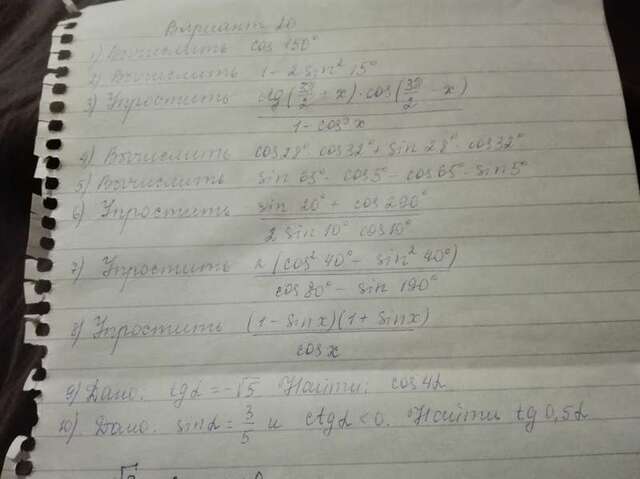 Вариант 20
1) Вычислить cos 150°
2) Вычислить 1 - 2 sin² 15°
3) Упростить ctg(3π/2 - x)·cos(3π/2 - x) / 1 - cos² x
4) Вычислить cos 28° · cos 32° + sin 28° · cos 32°
5) Вычислить sin 65° · cos 5° - cos 65° · sin 5°
6) Упростить sin 20° + cos 290° / 2 sin 10° cos 10°
7) Упростить (cos² 40° - sin² 40°) / cos 80° - sin 190°
8) Упростить (1 - sin x)(1 + sin x) / cos x
9) Дано: tg α = -√5 Найти: cos 4α
10). Дано: sin α = 3/5 и ctg α < 0. Найти tg 0,5α